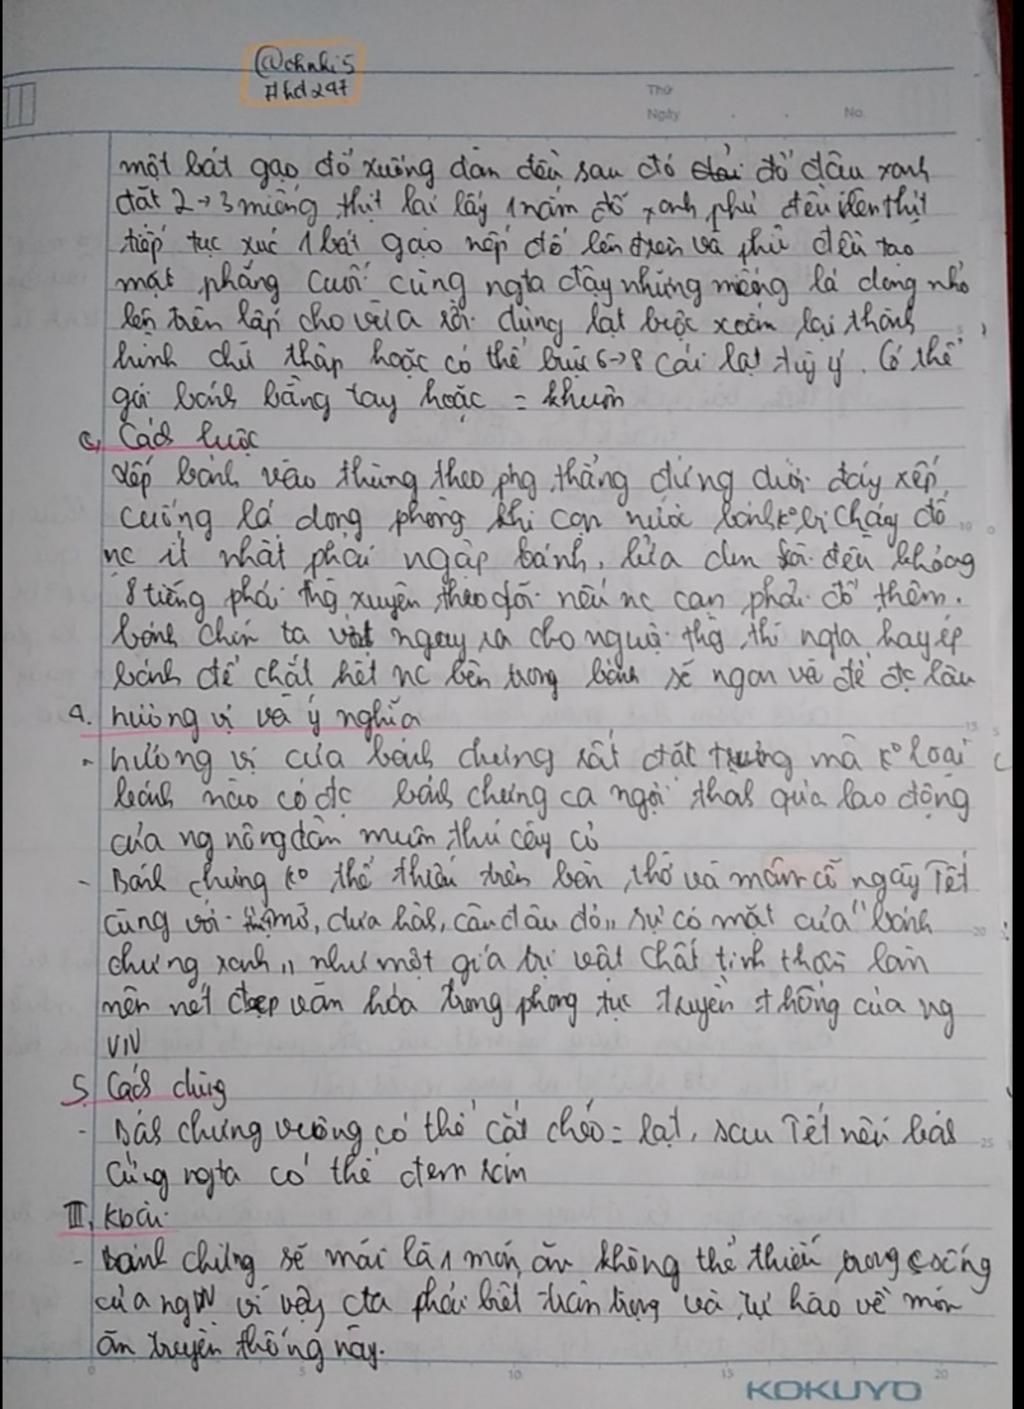 @chnhi5
#hd247
Thứ
Ngày . . No.
một bát gạo đổ xuống dàn đều sau đó đổ đậu xanh
đặt 2→3 miếng thịt lại lấy 1 nắm đỗ xanh phủ đều lên thịt
tiếp tục xúc 1 bát gạo nếp đổ lên trên và phủ đều tạo
mặt phẳng cuối cùng ngta đậy những miếng lá dong nhỏ
lên trên lấp cho vừa rồi dùng lạt buộc xoắn lại thành
hình chữ thập hoặc có thể buộc 6→8 cái lạt tùy ý. Có thể
gói bánh bằng tay hoặc = khuôn
c, Cách luộc
xếp bánh vào thùng theo phg thẳng đứng dưới đáy xếp
cuống lá dong phòng khi cạn nước bánh k° bị cháy đổ
nc ít nhất phải ngập bánh, lửa đun sôi đều khoảng
8 tiếng phải thg xuyên theo dõi nếu nc cạn phải đổ thêm.
bánh chín ta vớt ngay ra cho nguội thg thì ngta hay ép
bánh để chắt hết nc bên trong bánh sẽ ngon và để đc lâu
4. hương vị và ý nghĩa
- hương vị của bánh chưng rất đặt trưng mà k° loại
bánh nào có đc bánh chưng ca ngợi thành quả lao động
của ng nông dân muôn thú cây cỏ
- Bánh chưng k° thể thiếu trên bàn thờ và mâm cỗ ngày Tết
cùng với thịt mỡ, dưa hàh, câu đâu đỏ" sự có mặt của "bánh
chưng xanh" như một giá trị vật chất tinh thần làm
nên nét đẹp văn hóa trong phong tục truyền thống của ng
VN
5. Cách dùng
- Báh chưng vuông có thể cắt chéo = lạt, sau Tết nếu báh
cứng ngta có thể đem rán
III, Kbài
- Bánh chưng sẽ mãi là 1 món ăn không thể thiếu trong csống
của ng VN vì vậy cta phải biết trân trọng và tự hào về món
ăn truyền thống này.
0 5 10 15 20
KOKUYO